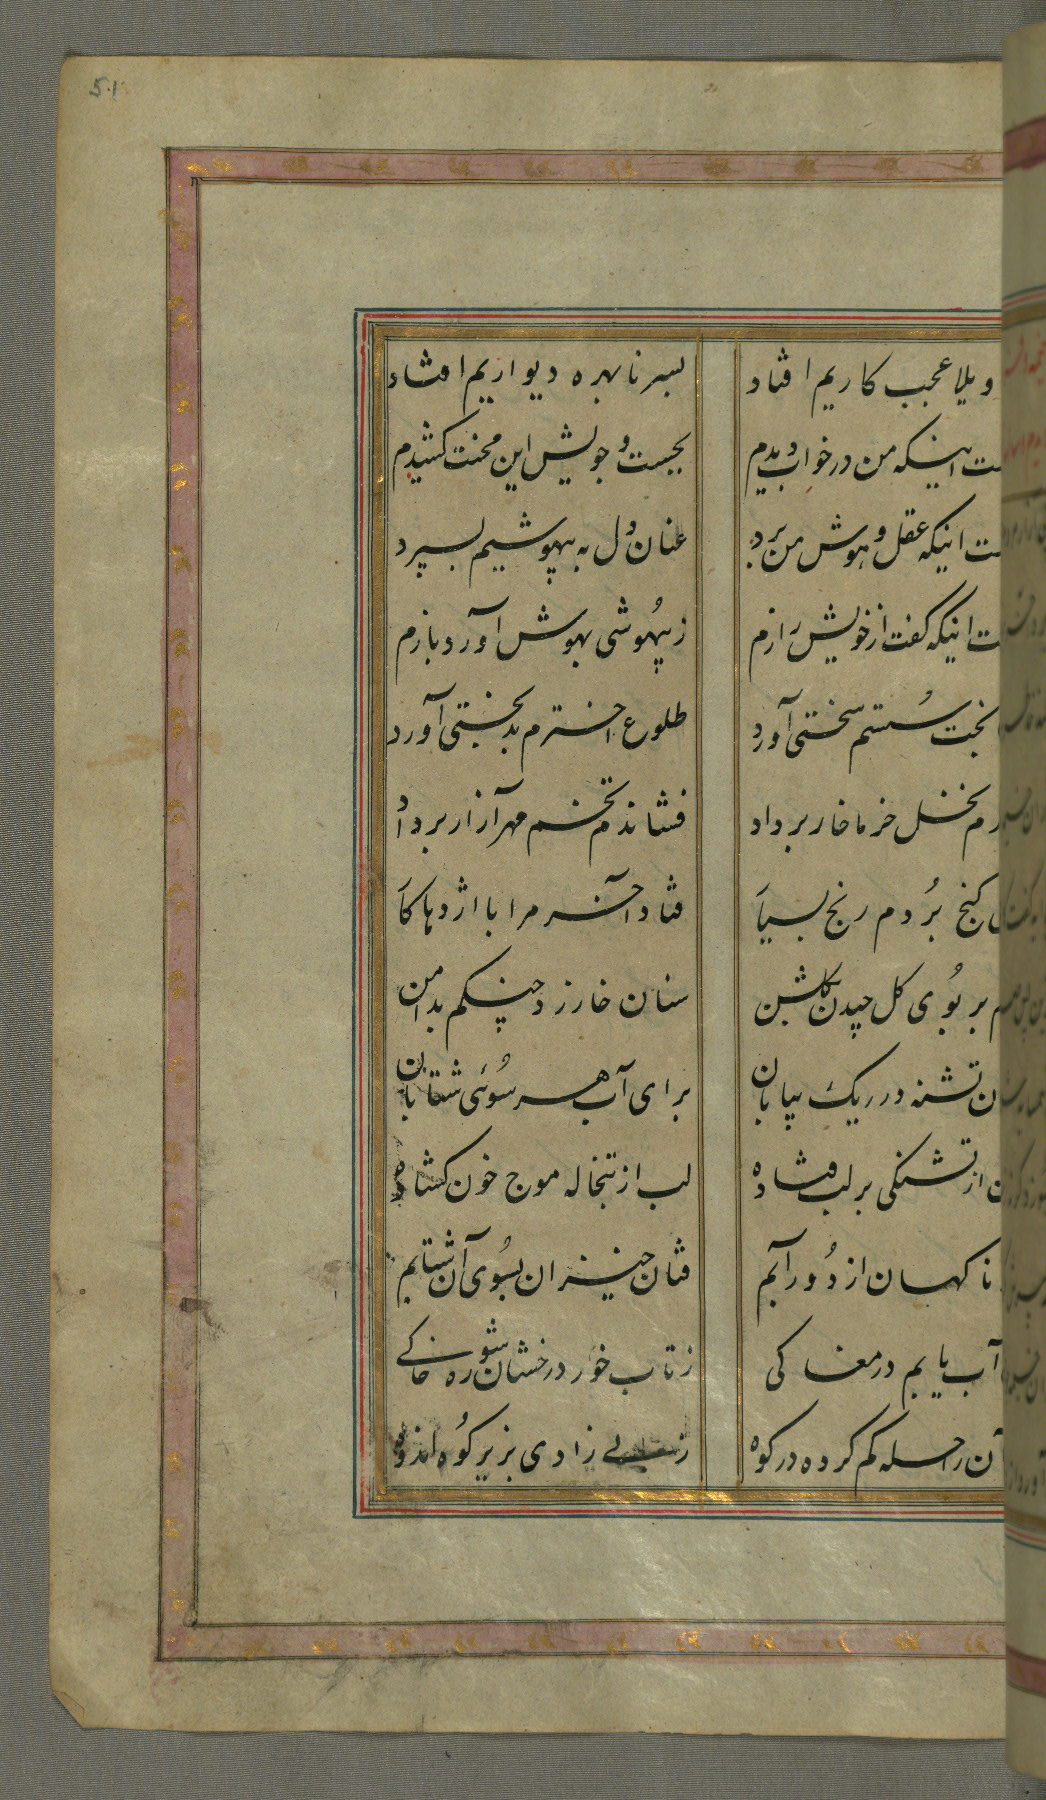 51
ویلا عجب کاریم افتاد بسر نابهره دیواریم افتاد
ست اینکه من در خواب دیدم بجست و جویش این محنت کشیدم
ست اینکه عقل و هوش من برد عنان دل به بیهوشیم بسپرد
ست اینکه گفت از خویش رازم ز بیهوشی بهوش آورد بازم
بخت سستم سختی آورد طلوع اخترم بدبختی آورد
نخل خرما خار بر داد فشاندم تخم مهر آزار بر داد
گنج بردم رنج بسیار فتاد آخر مرا با اژدها کار
بر بوی گل چیدن گلشن سنان خار زد چنگم بدامن
تشنه در ریگ بیابان برای آب هر سوئی شتابان
از تشنگی بر لب فتاده لب از تبخاله موج خون گشاده
ناگهان از دور آبم فتان خیزان بسوی آن شتابم
آب یابم در مغاکی ز تاب خور درخشان شوره خاکی
آن راحله گم کرده در کوه ز بی زادی بزیر کوه اندوه